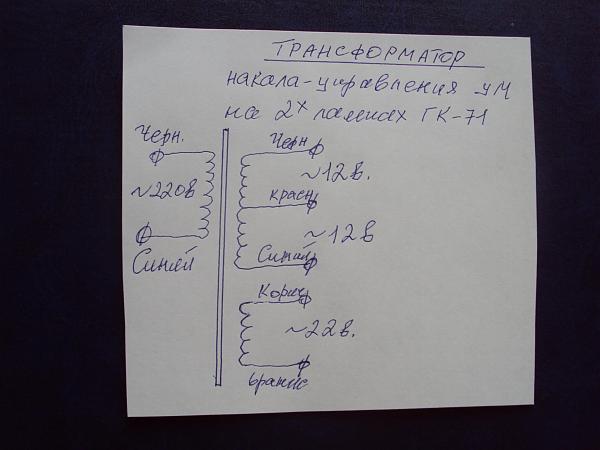 ТРАНСФОРМАТОР
накала-управления УМ
на 2х лампах ГК-71
Черн.
~220в
Синей
Черн
~12в.
красн
~12в
Синий
Корич
~22в.